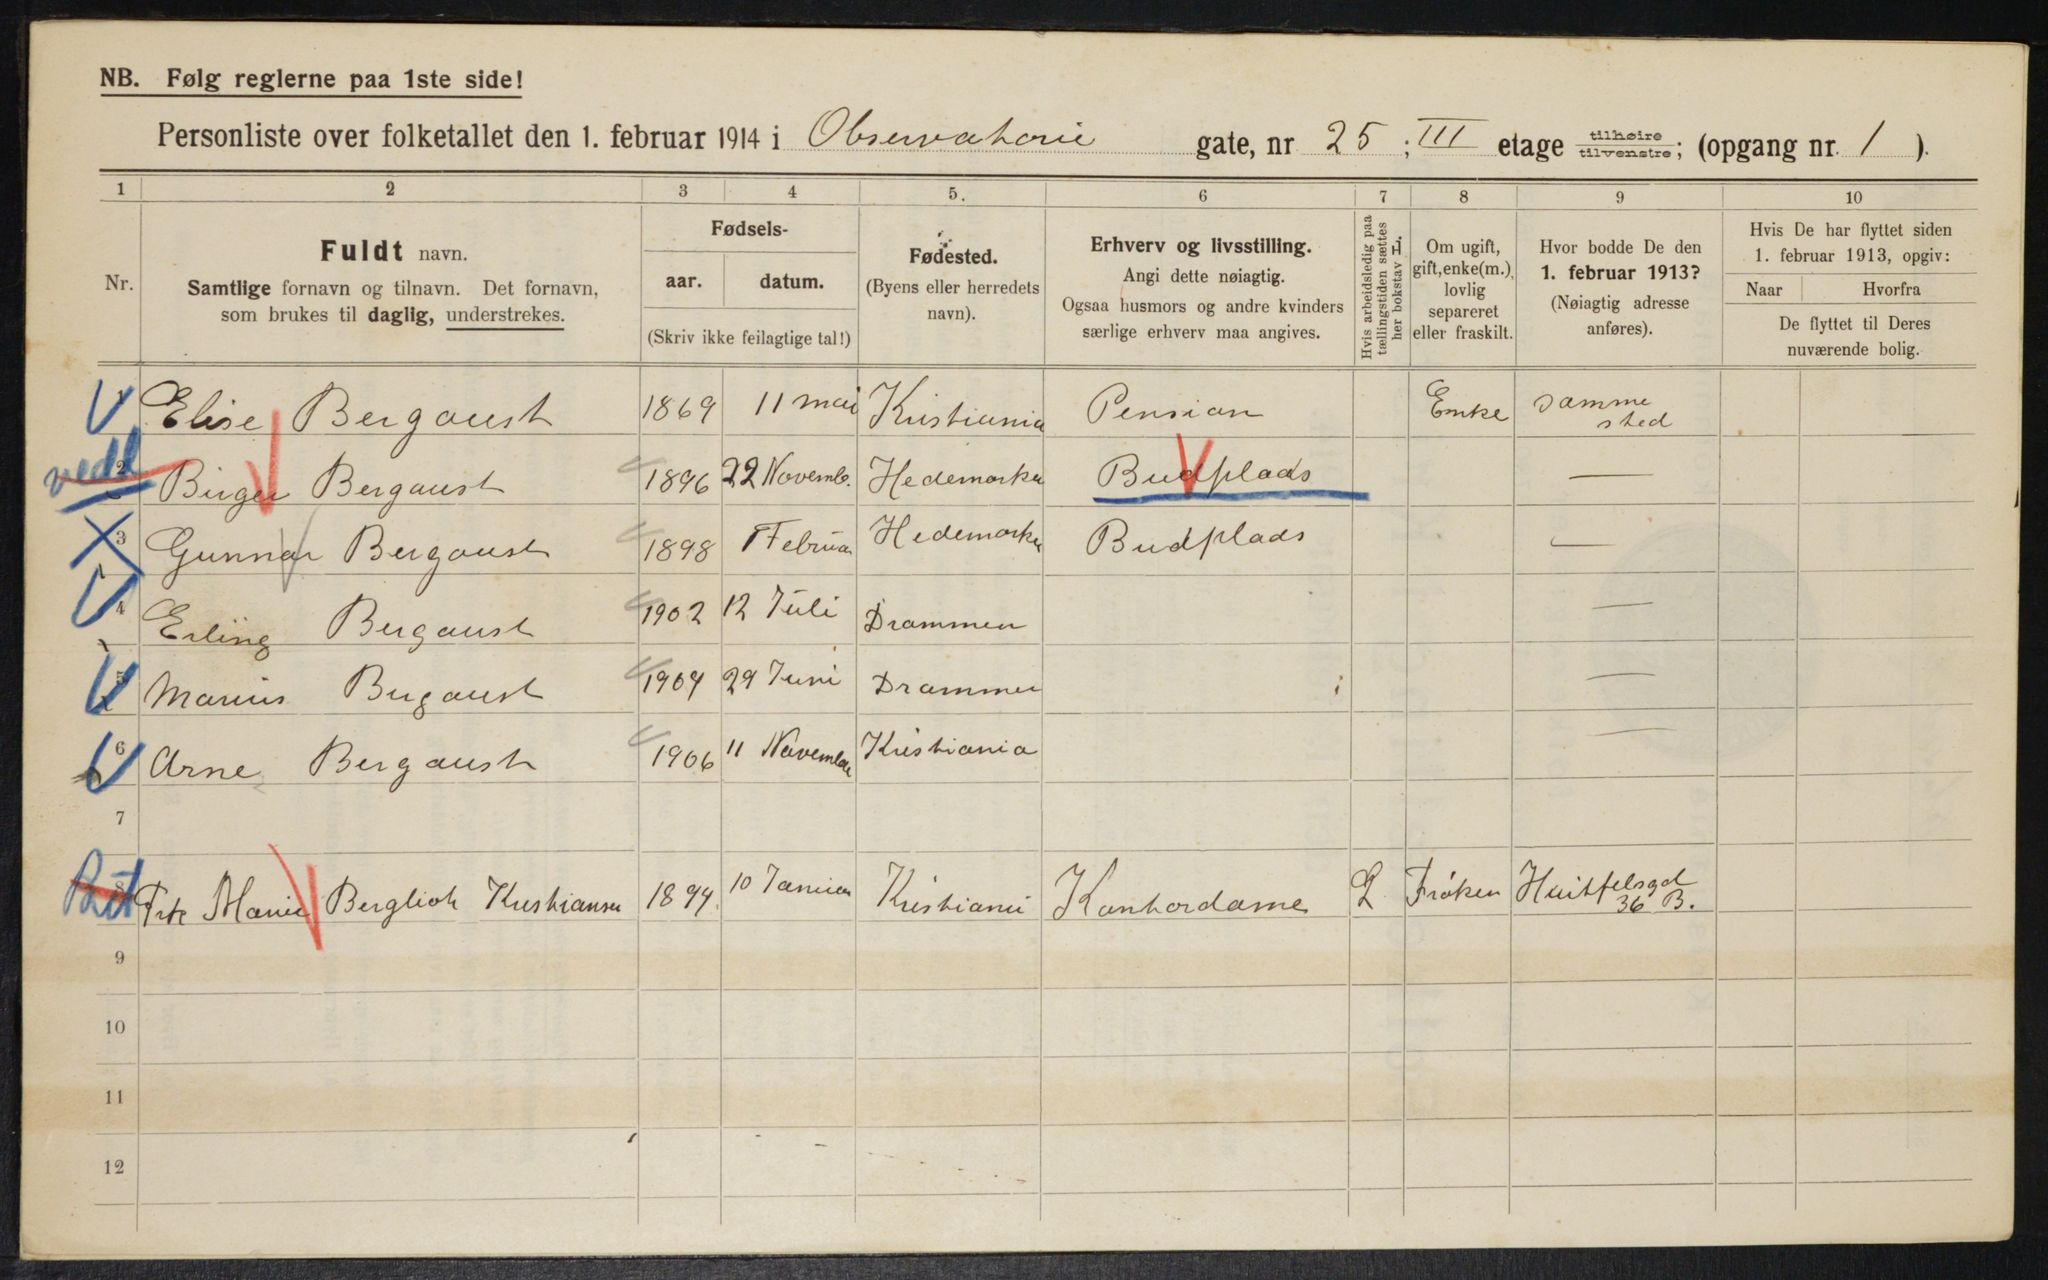 NB. Følg reglerne paa 1ste side!
Personliste over folketallet den 1. februar 1914 i Observatorie gate, nr 25; III etage tilhøire / tilvenstre; (opgang nr. 1).
1 2 3 4 5. 6 7 8 9 10
Nr.
Fuldt navn.
Samtlige fornavn og tilnavn. Det fornavn,
som brukes til daglig, understrekes.
Fødsels-
aar. datum.
(Skriv ikke feilagtige tal!)
Fødested.
(Byens eller herredets
navn).
Erhverv og livsstilling.
Angi dette nøiagtig.
Ogsaa husmors og andre kvinders
særlige erhverv maa angives.
Hvis arbeidsledig paa
tællingstiden sættes
her bokstav L.
Om ugift,
gift, enke(m.),
lovlig
separeret
eller fraskilt.
Hvor bodde De den
1. februar 1913?
(Nøiagtig adresse
anføres).
Hvis De har flyttet siden
1. februar 1913, opgiv:
Naar Hvorfra
De flyttet til Deres
nuværende bolig.
1 Elise Bergaust 1869 11 mai Kristiania Pension Enke samme sted
2 Birger Bergaust 1896 22 Novemb. Hedemarken Budplads —
3 Gunnar Bergaust 1898 Februar Hedemarken Budplads —
4 Erling Bergaust 1902 12 Juli Drammen —
5 Marius Bergaust 1904 29 Juni Drammen —
6 Arne Bergaust 1906 11 November Kristiania —
7
8 Frk Marie Bergliot Kristiansen 1894 10 Januar Kristiania Kontordame L Frøken Huitfelsgd 36 B.
9
10
11
12